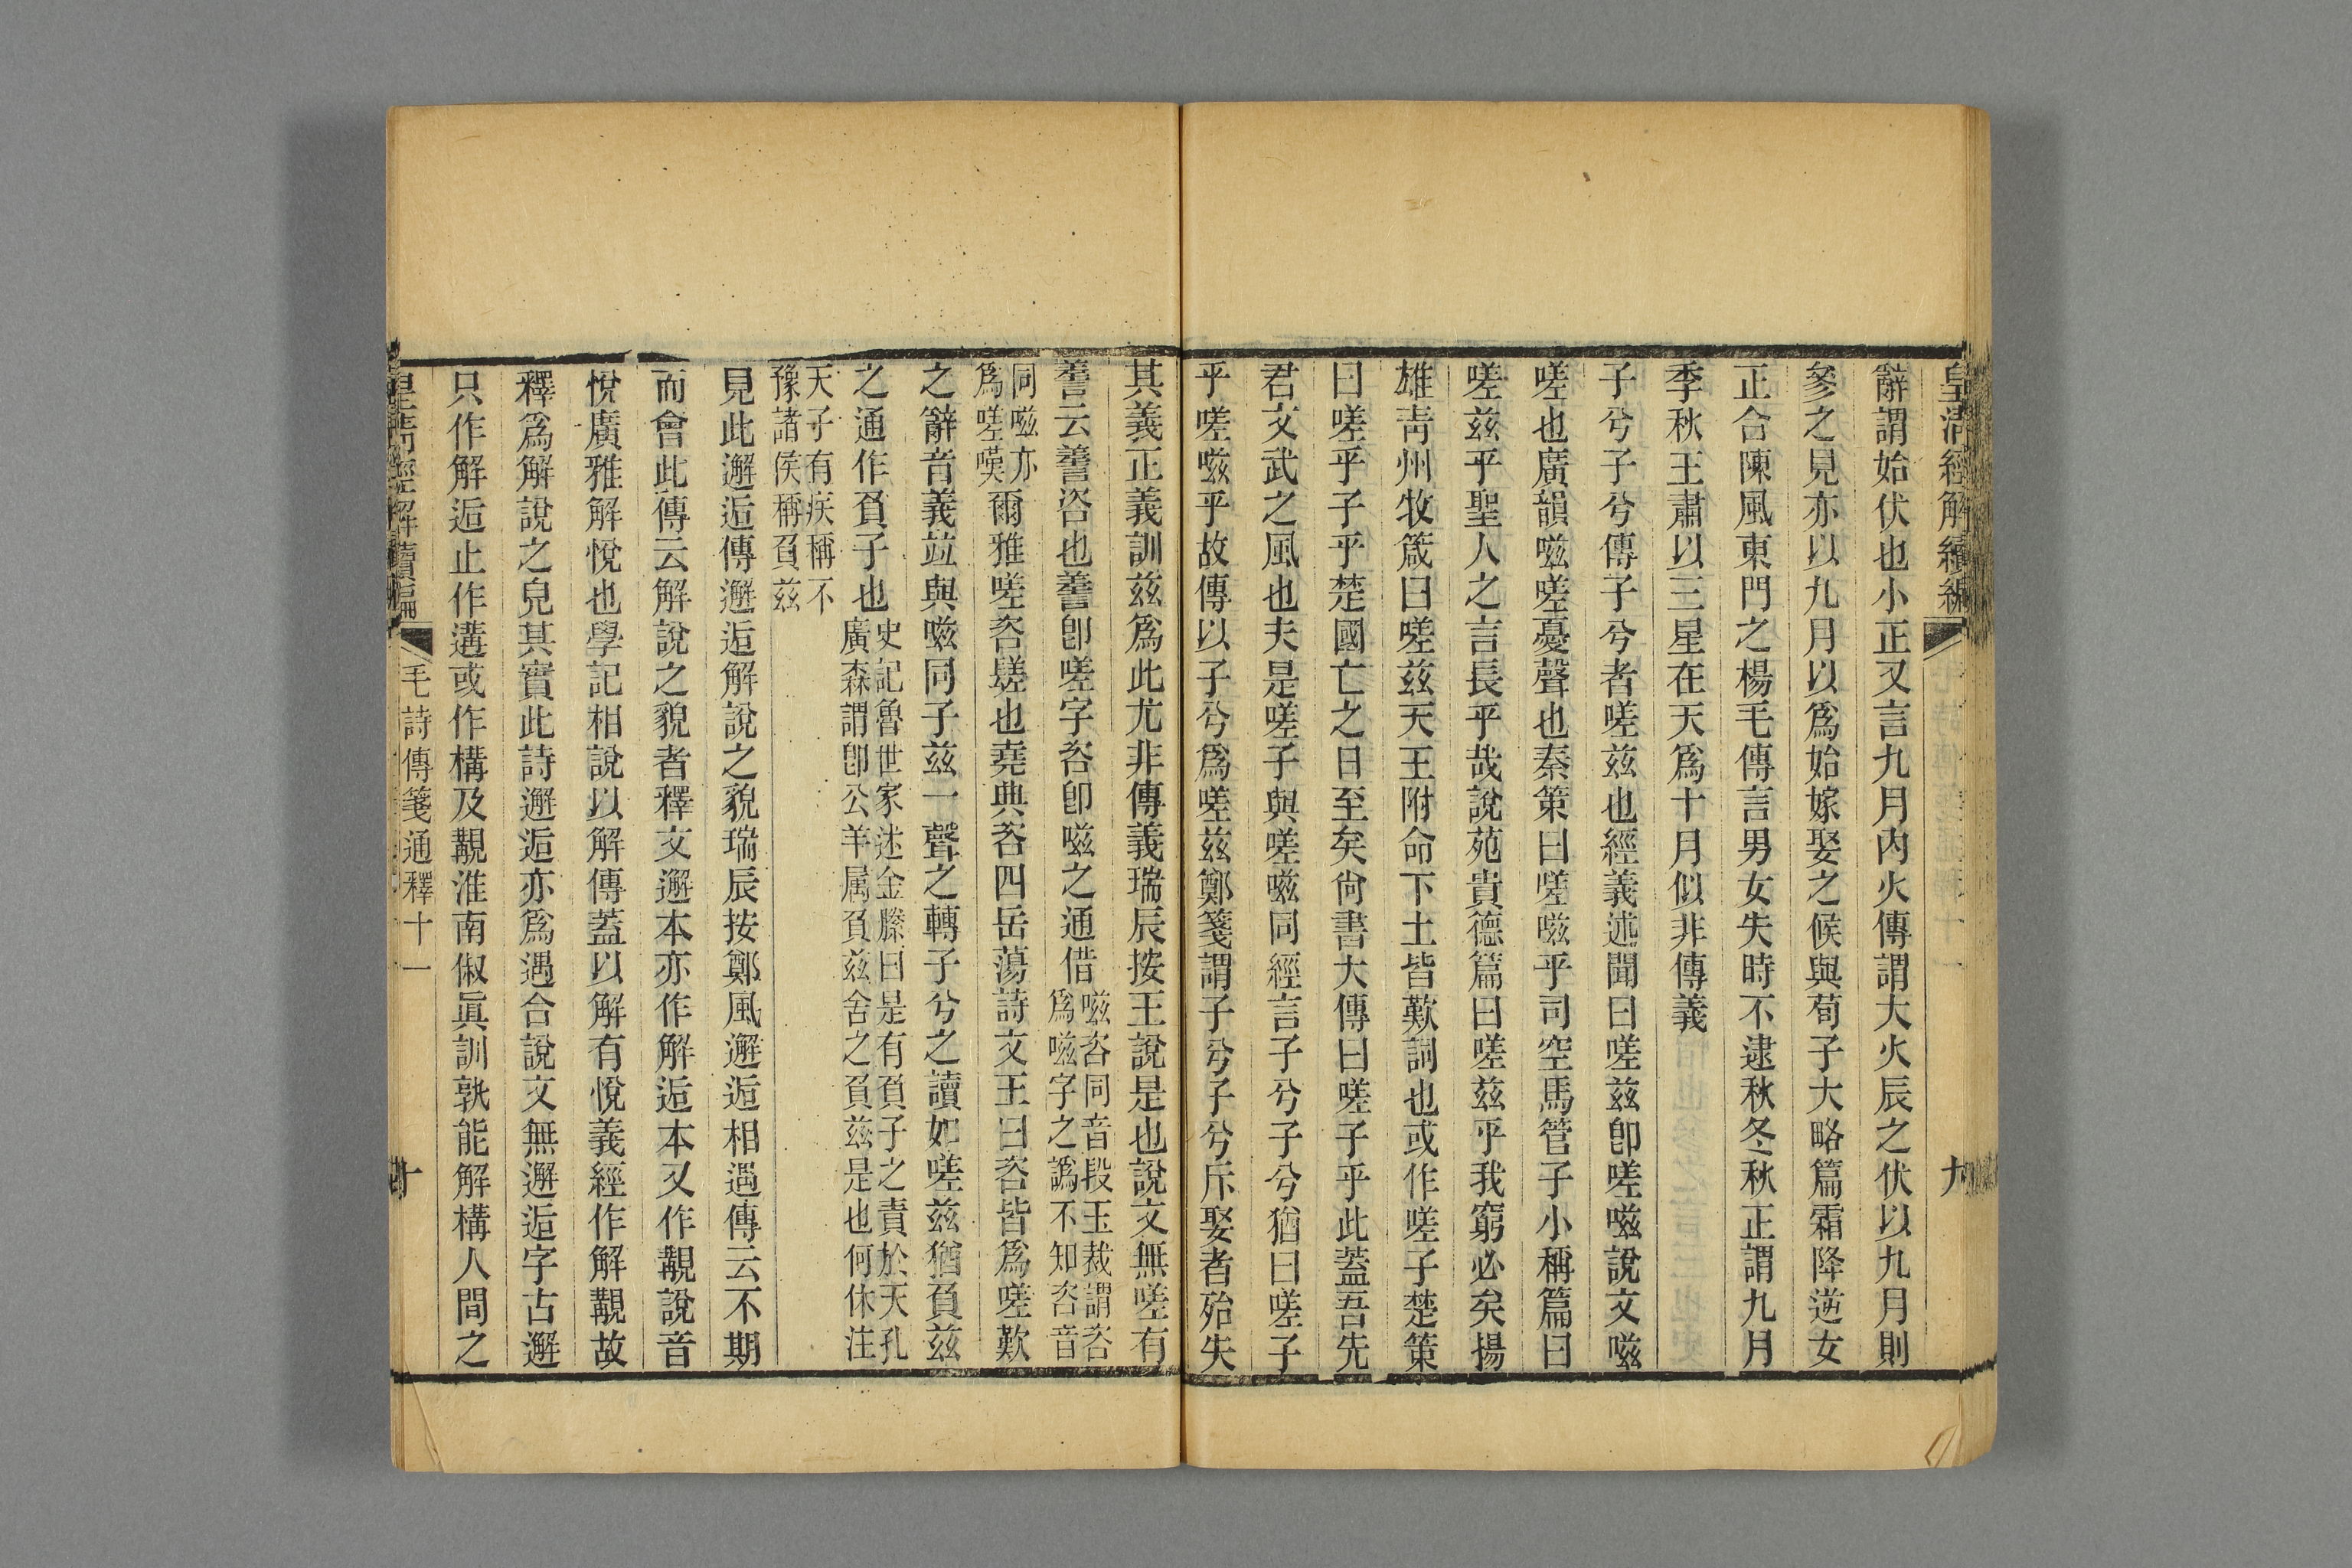 皇清經解續編
九
辭謂始伏也小正又言九月內火傳謂大火辰之伏以九月則
參之見亦以九月以爲始嫁娶之候與荀子大略篇霜降逆女
正合陳風東門之楊毛傳言男女失時不逮秋冬秋正謂九月
季秋王肅以三星在天爲十月似非傳義
子兮子兮傳子兮者嗟茲也經義述聞曰嗟茲卽嗟嗞說文嗞
嗟也廣韻嗞嗟憂聲也秦策曰嗟嗞乎司空馬管子小稱篇曰
嗟茲乎聖人之言長乎哉說苑貴德篇曰嗟茲乎我窮必矣揚
雄靑州牧箴曰嗟茲天王附命下土皆歎詞也或作嗟子楚策
曰嗟乎子乎楚國亡之日至矣尙書大傳曰嗟子乎此蓋吾先
君文武之風也夫是嗟子與嗟嗞同經言子兮子兮猶曰嗟子
乎嗟嗞乎故傳以子兮爲嗟茲鄭箋謂子兮子兮斥娶者殆失
其義正義訓茲爲此尤非傳義瑞辰按王說是也說文無嗟有
𧪰云𧪰咨也𧪰卽嗟字咨卽嗞之通借嗞咨同音段玉裁謂咨
爲嗞字之譌不知咨音
同嗞亦
爲嗟嘆爾雅嗟咨𨲠也堯典咨四岳蕩詩文王曰咨皆爲嗟歎
之辭音義竝與嗞同子茲一聲之轉子兮之讀如嗟茲猶負茲
之通作負子也史記魯世家述金縢曰是有負子之責於天孔
廣森謂卽公羊屬負茲舍之負茲是也何休注
天子有疾稱不
豫諸侯稱負茲
見此邂逅傳邂逅解說之貌瑞辰按鄭風邂逅相遇傳云不期
而會此傳云解說之貌者釋文邂本亦作解逅本又作覯說音
悅廣雅解悅也學記相說以解傳蓋以解有悅義經作解覯故
釋爲解說之皃其實此詩邂逅亦爲遇合說文無邂逅字古邂
只作解逅止作遘或作構及覯淮南俶眞訓孰能解構人間之
皇淸經解續編
毛詩傳箋通釋十一
十